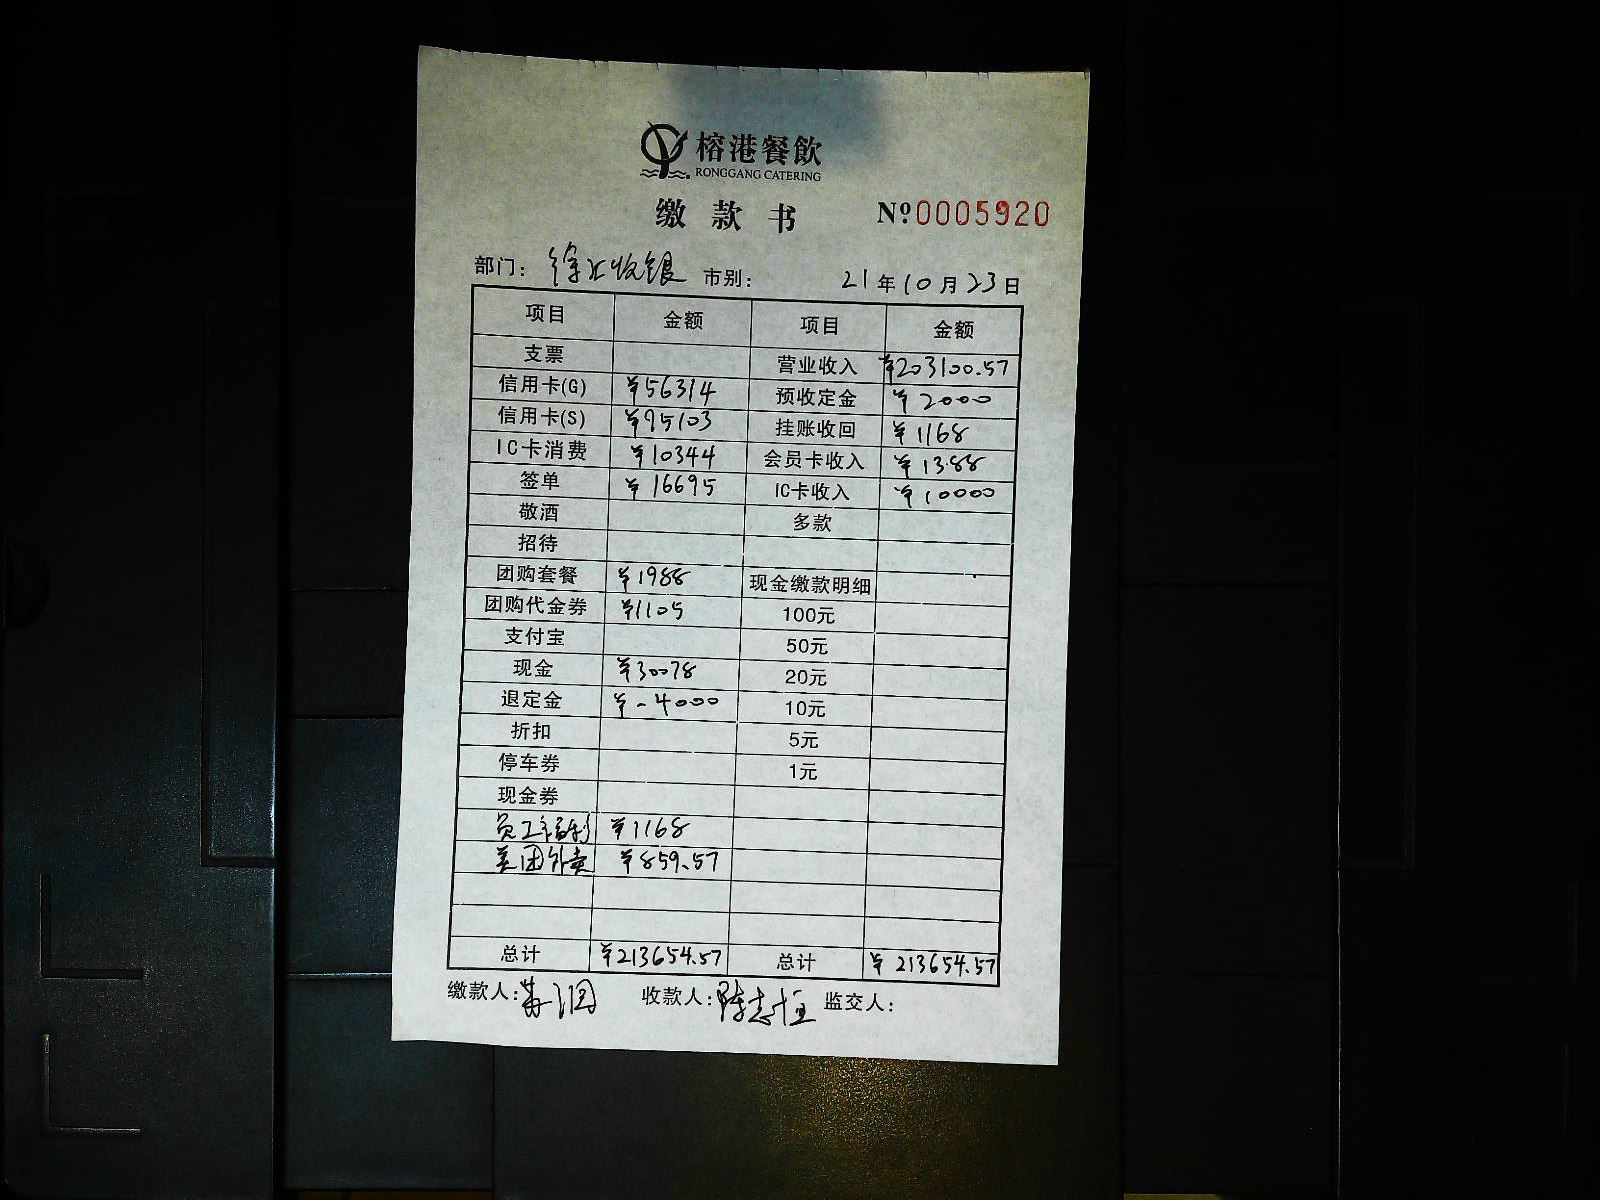 榕港餐飲
RONGGANG CATERING
缴款书 Nº0005920
部门：徐汇收银 市别： 21年10月23日
项目 金额 项目 金额
支票 营业收入 ¥203100.57
信用卡(G) ¥56314 预收定金 ¥2000
信用卡(S) ¥95103 挂账收回 ¥1168
IC卡消费 ¥10344 会员卡收入 ¥1388
签单 ¥16695 IC卡收入 ¥10000
敬酒 多款
招待
团购套餐 ¥1988 现金缴款明细
团购代金券 ¥1105 100元
支付宝 50元
现金 ¥30078 20元
退定金 ¥-4000 10元
折扣 5元
停车券 1元
现金券
员工福利 ¥1168
美团外卖 ¥859.57
总计 ¥213654.57 总计 ¥213654.57
缴款人： 收款人：陈志恒 监交人：